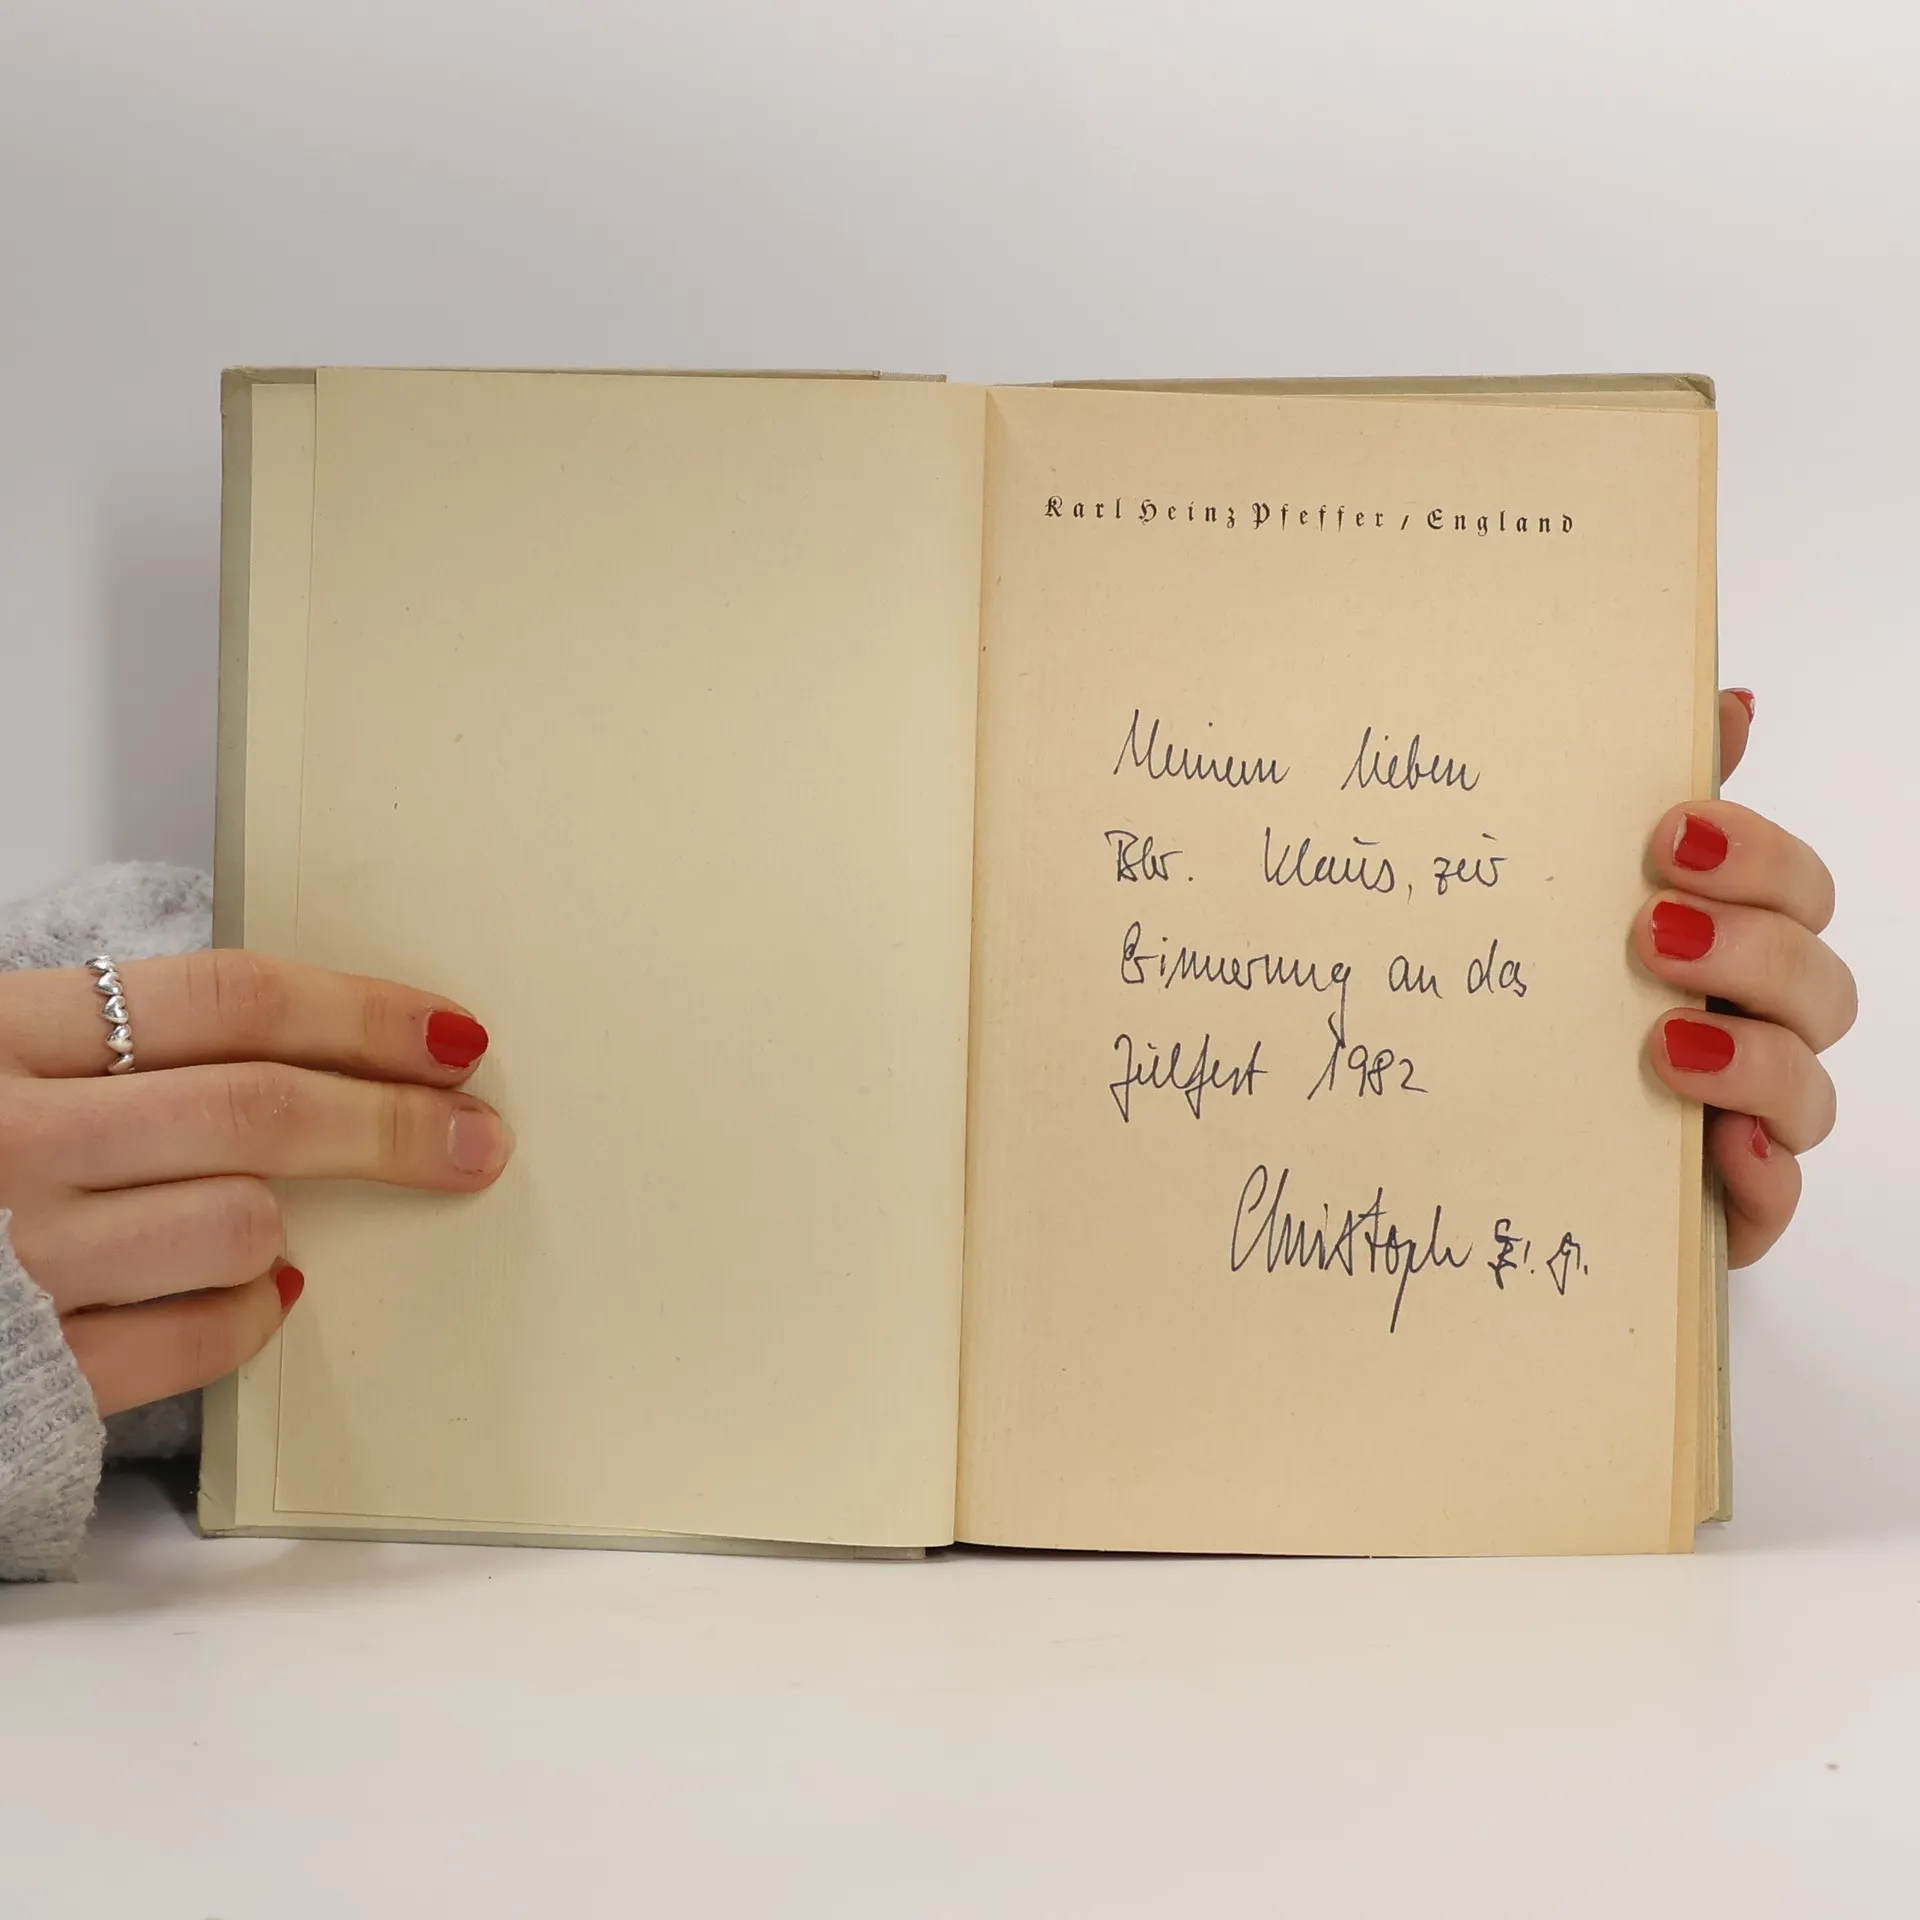 Karl Heinz Pfeffer / England
Meinem lieben
Bbr. Klaus, zur
Erinnerung an das
Julfest 1982
Christoph